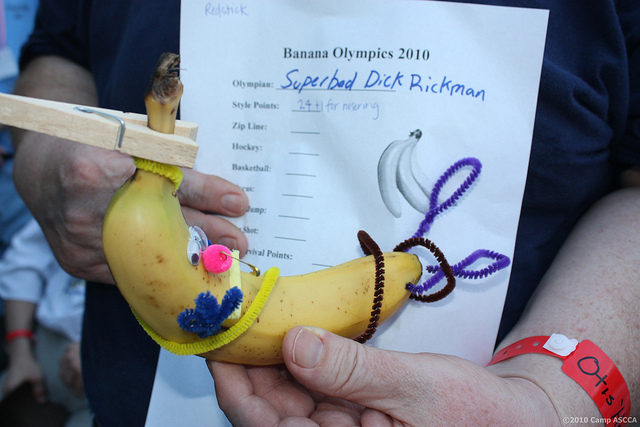 Redstick
Banana Olympics 2010
Olympian: Superbad Dick Rickman
Style Points: 24 +1 for
Zip Line:
Hockey:
Basketball:
Shot:
Points:
Otis
©2010 Camp ASCCA